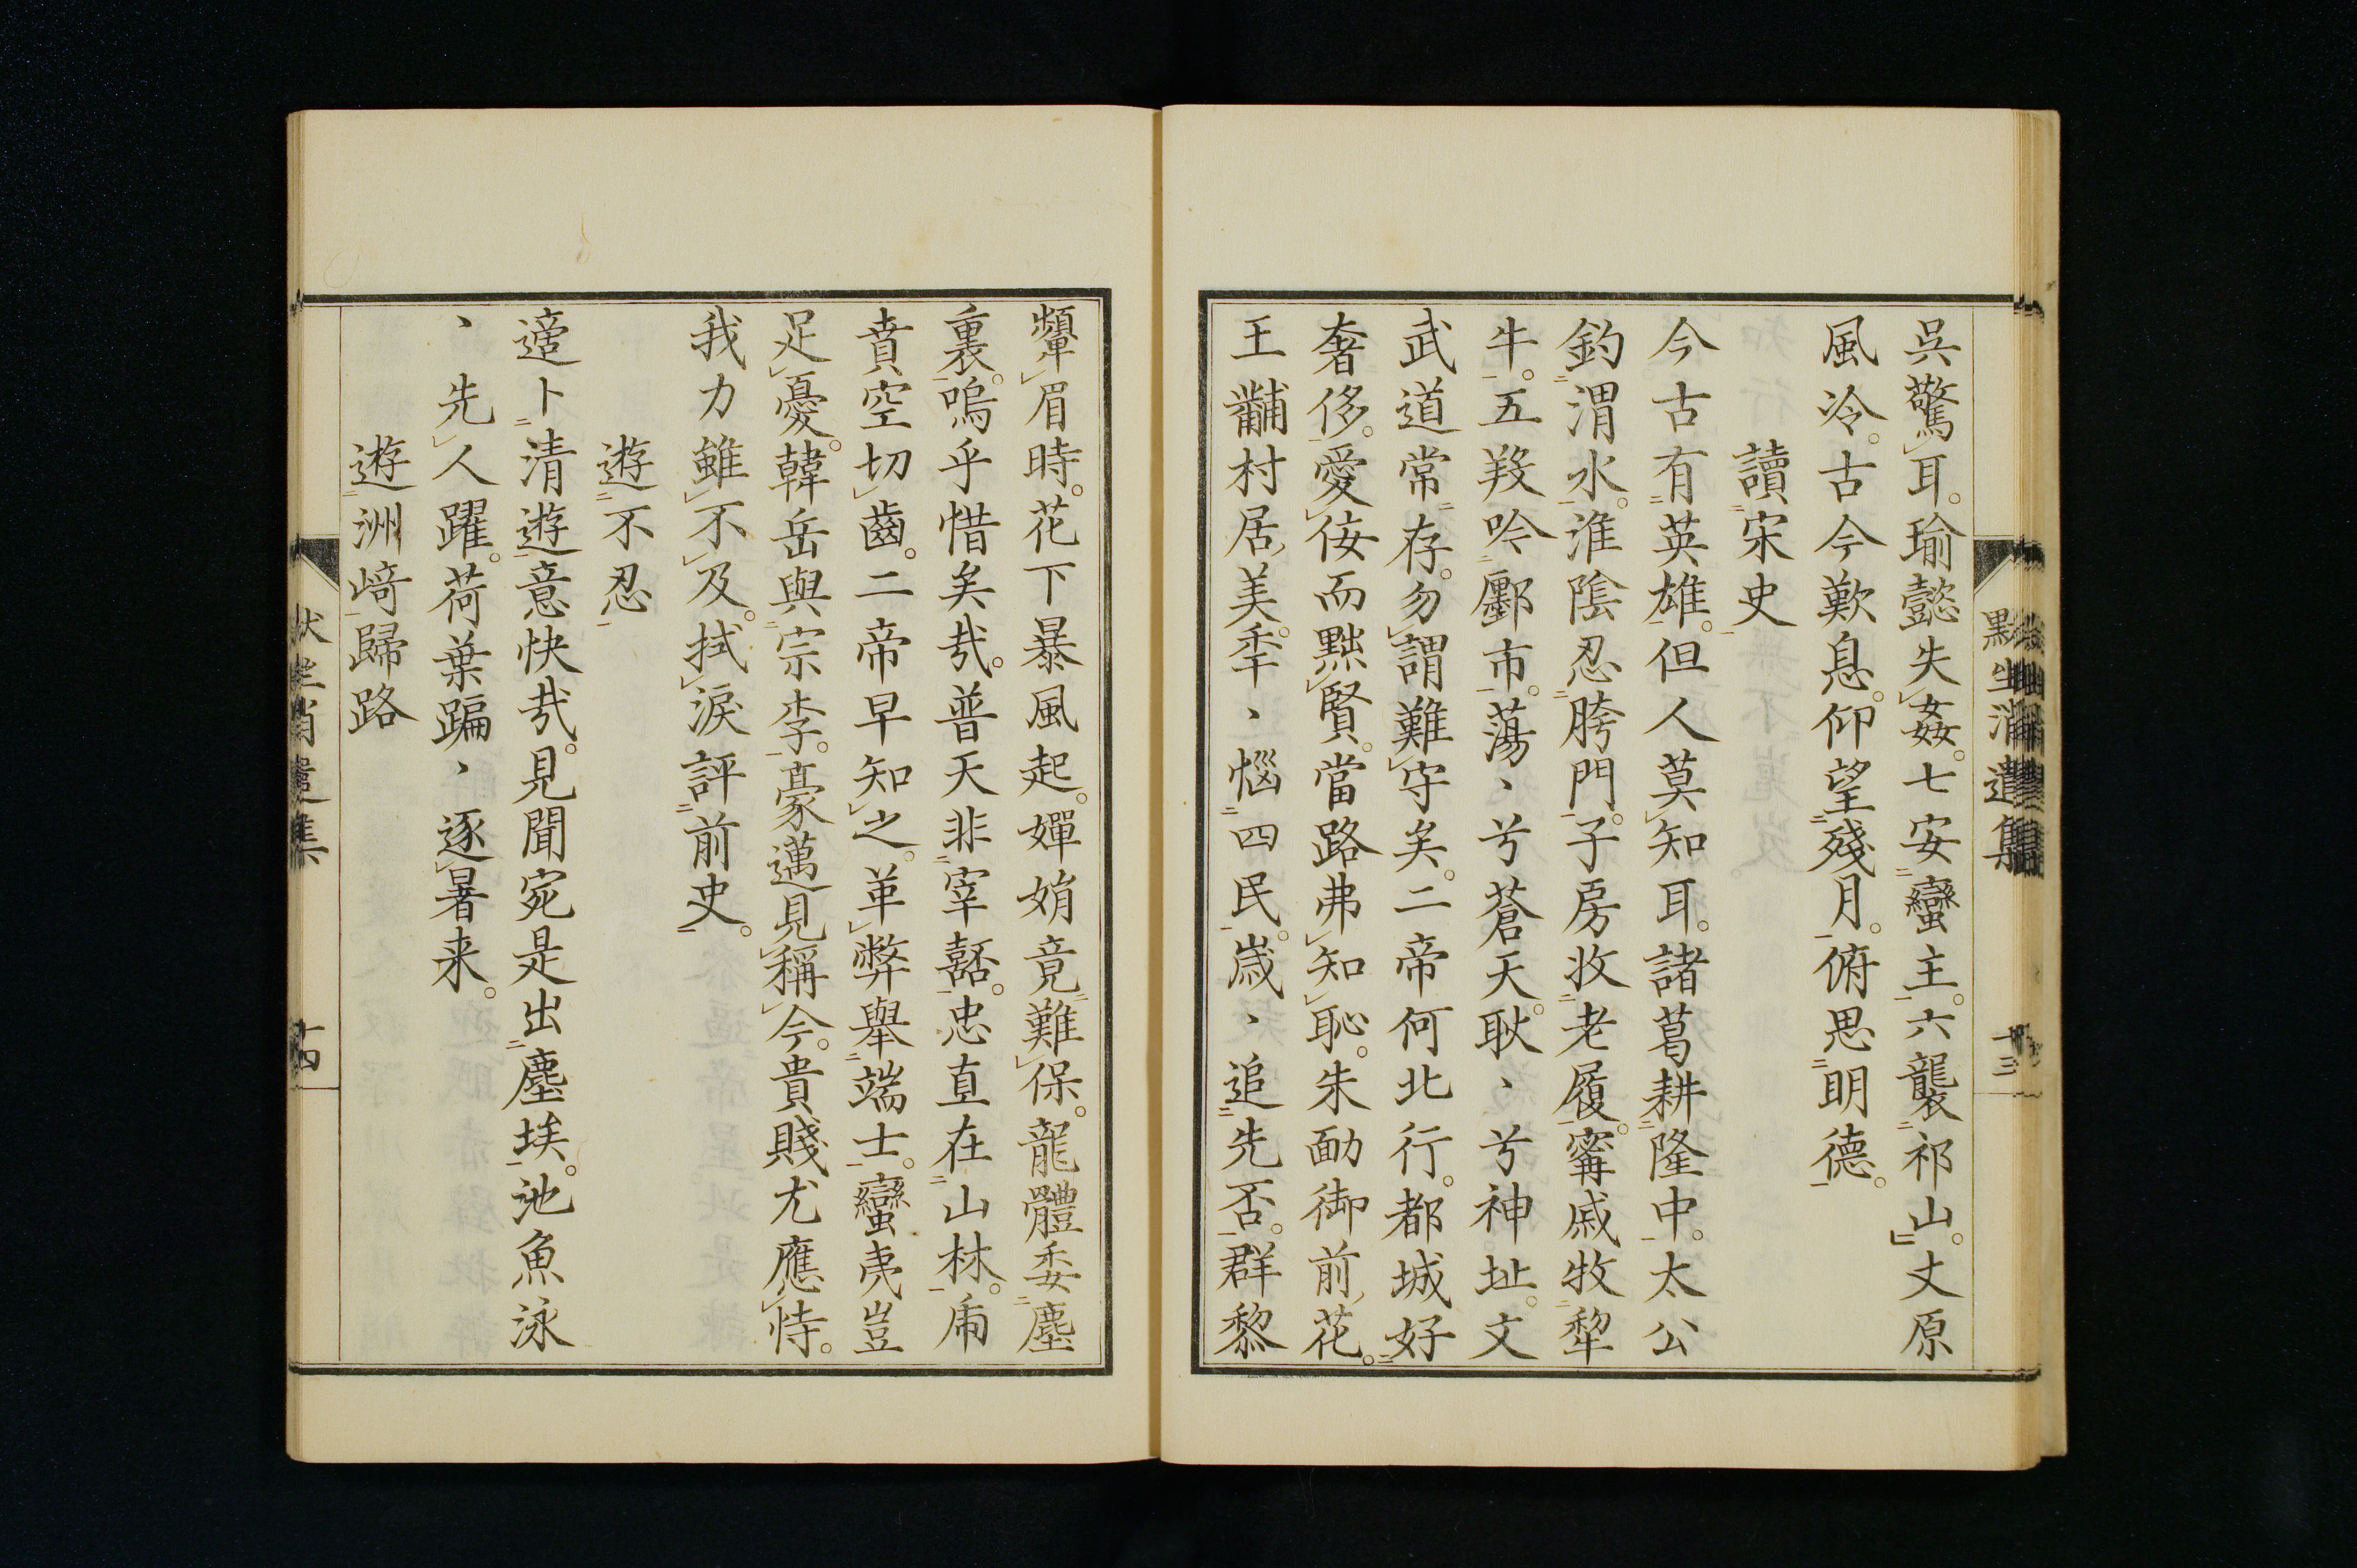 吳驚耳。瑜懿失姦。七安蠻主。六襲祁山。丈原
風冷。古今歎息。仰望殘月。俯思明德。
讀宋史
今古有英雄。但人莫知耳。諸葛耕隆中。太公
釣渭水。淮陰忍胯門。子房收老履。甯戚牧犂
牛。五羖吟鄽市。蕩、兮蒼天。耿、兮神址。文
武道常存。勿謂難守矣。二帝何北行。都城好
奢侈。愛佞而黜賢。當路弗知恥。朱勔御前花。
王黼村居美。季、惱四民。歲、追先否。群黎
顰眉時。花下暴風起。嬋娟竟難保。龍體委塵
裏。嗚乎惜矣哉。普天非宰嚭。忠直在山林。虎
賁空切齒。二帝早知之。革弊舉端士。蠻夷豈
足憂。韓岳與宗李。豪邁見稱今。貴賤尤應恃。
我力雖不及。拭淚評前史。
遊不忍
適卜清遊意快哉。見聞宛是出塵埃。池魚泳
、先人躍。荷葉蹁、逐暑来。
遊洲﨑歸路
消遺集
十三
十四